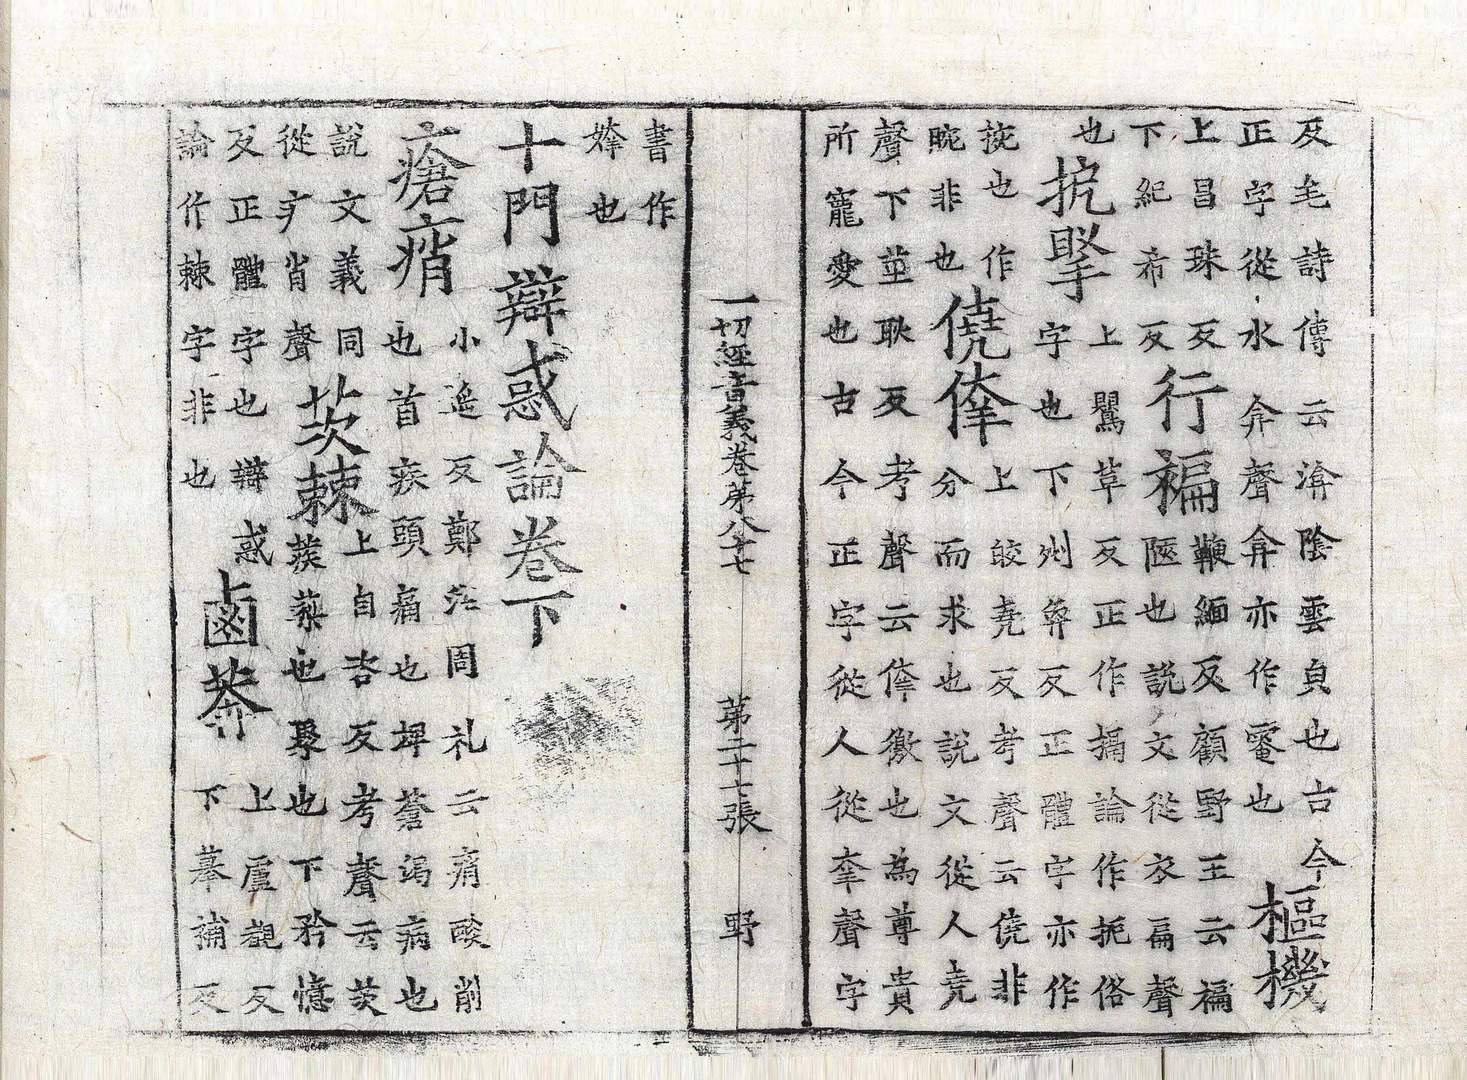 反毛詩傳云渰陰雲皃也古今
正字從水弇聲弇亦作䨄也
樞機
上昌珠反
下紀希反
行褊
鞭緬反顧野王云褊
陿也說文從衣扁聲
也
扼掔
上鸎革反正作搹論作扼俗
字也下反正體字亦作
捥也作
腕非也
僥倖
上皎堯反考聲云僥非
分而求也說文從人堯
聲下莖耿反考聲云倖儌也為尊貴
所寵愛也古今正字從人從㚔聲字
一切經音義卷苐八十七 苐二十七張 野
書作
婞也
十門辯惑論卷下
瘡痟
小遙反鄭注周礼云痟酸削
也首疾頭痛也埤蒼渴病也
說文義同
從疒肖聲
茨棘
上自咨反考聲云茨
蒺蔾也聚也下矜憶
反正體字也辯惑
論作棘字非也
鹵莽
上盧覩反
下摹補反